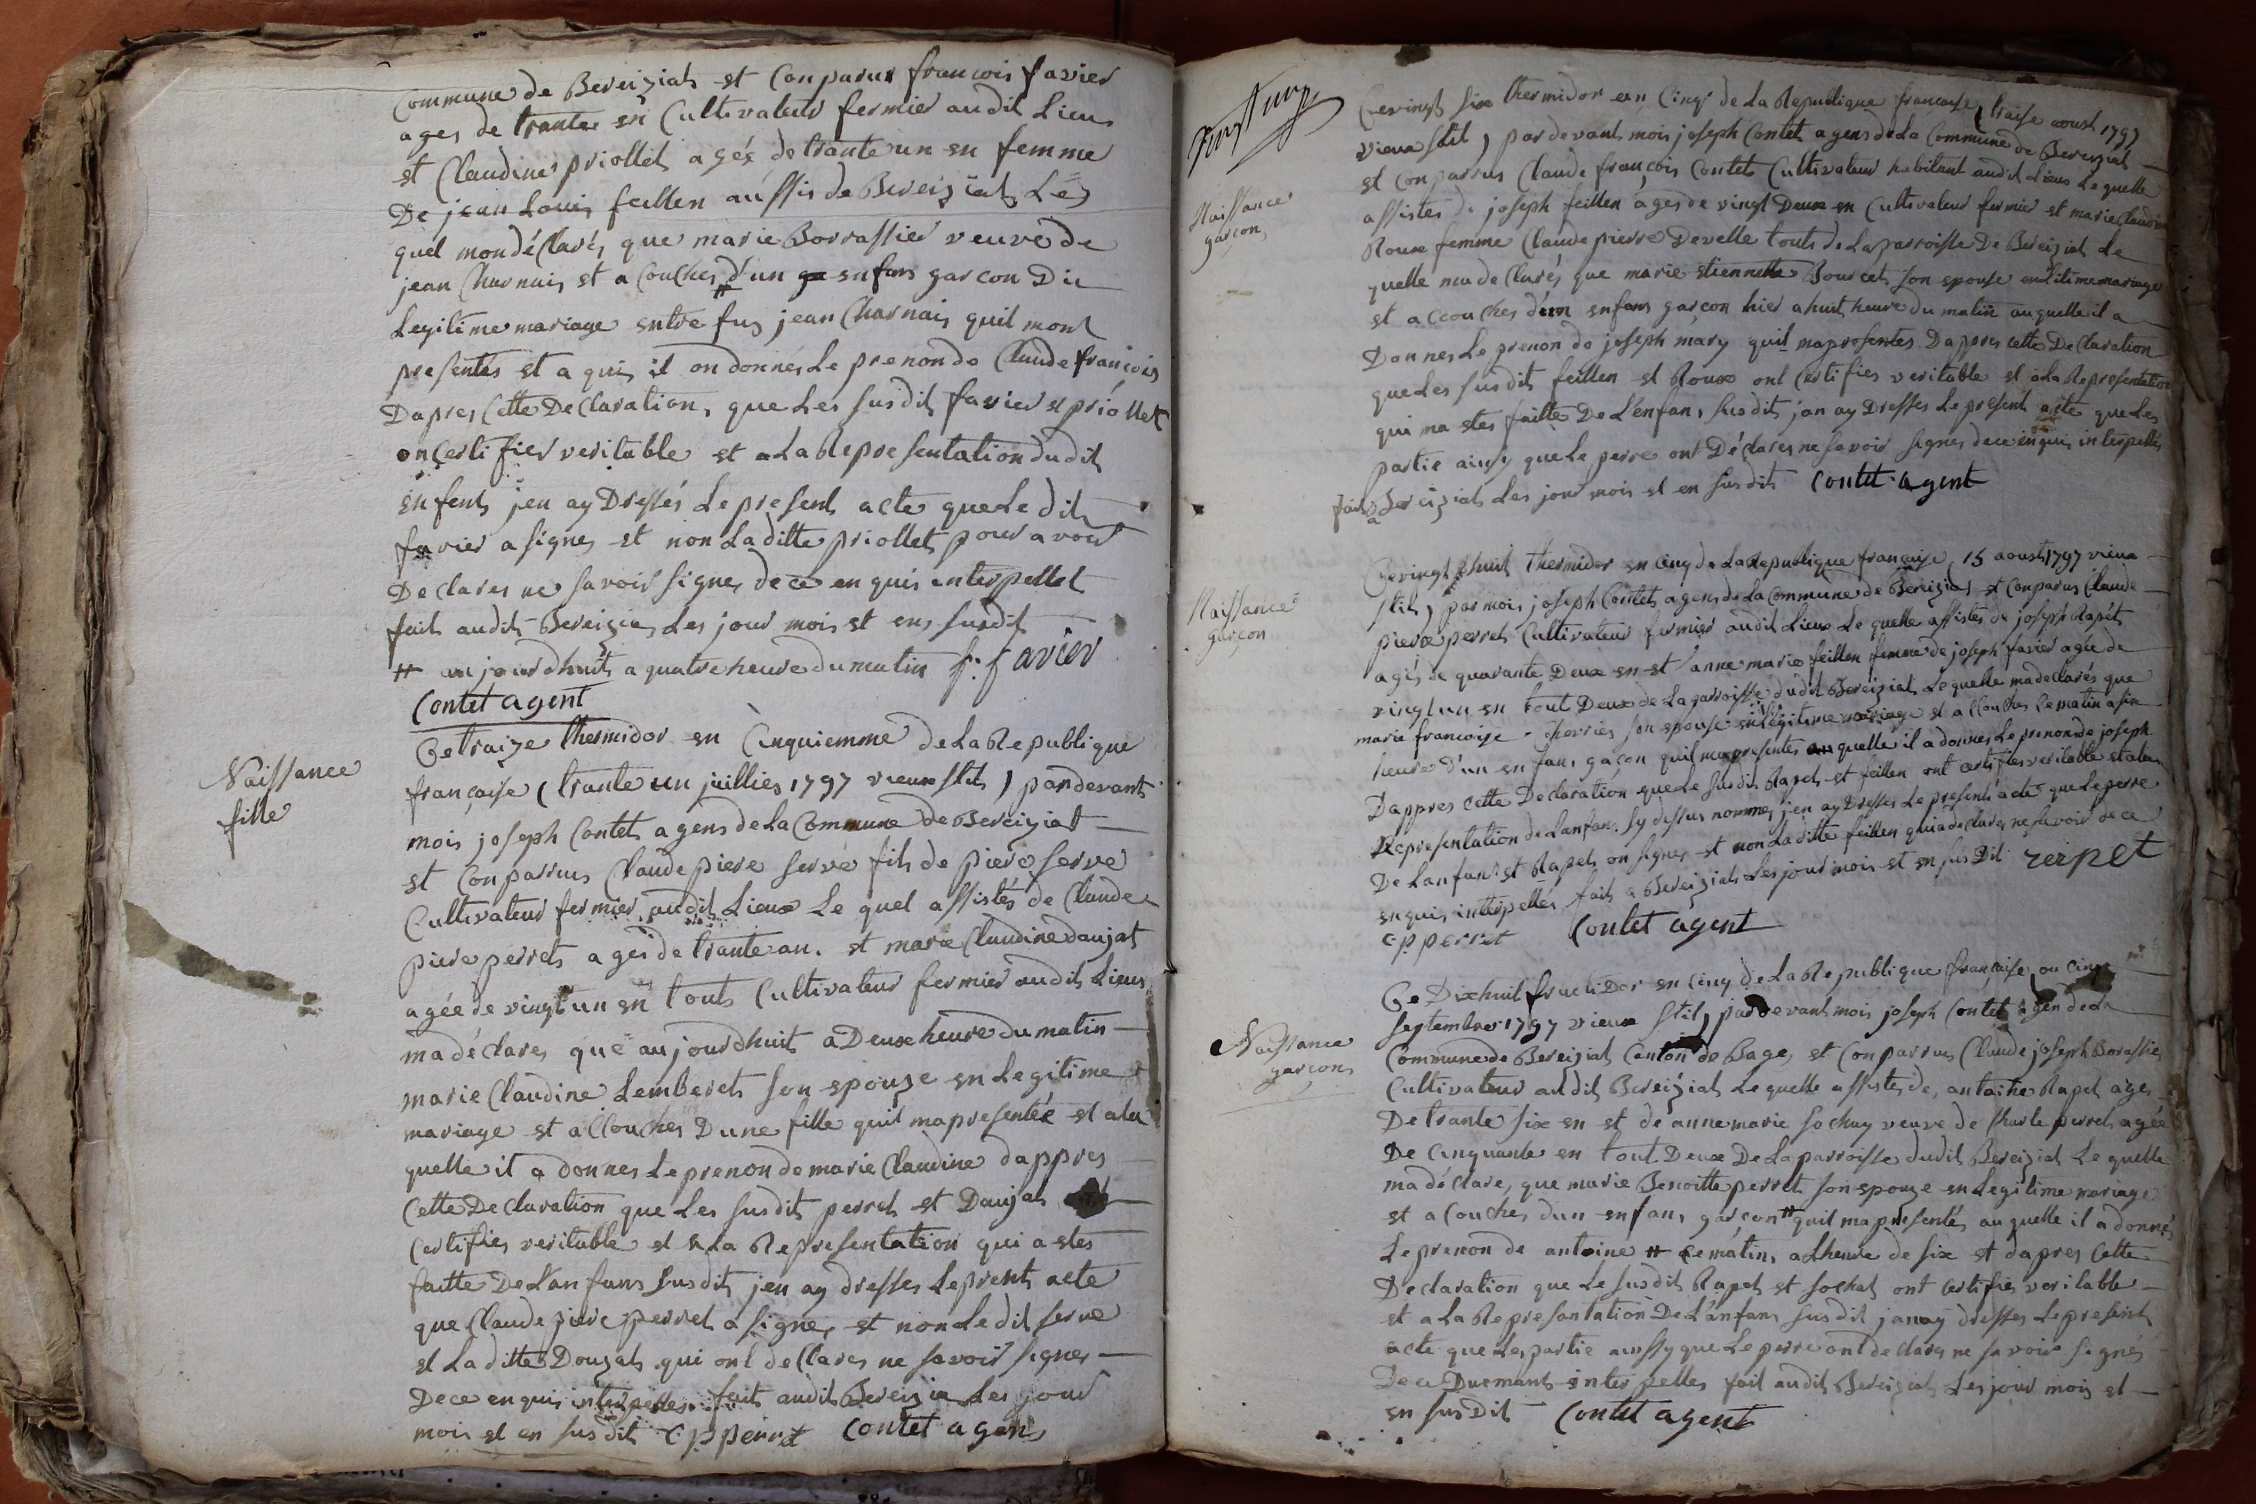 commune de Bereiziat et Conparus francois favier
ages de trante en Cultivateur fermier audit Lieus
et Claudine priollet agée de trante un en femme
De jean Louis feillen aussis de Bereiziat Les
quel mon déClarés que marie Borrassier veuve de
jean Charnais et a Couches # d'un enfans garcon Du
Legitime mariage entre fus jean Charnais quil mont
presentés et a quis il on donnés Le prenon de Claude francois
Dapres Cette DeClaration, que Les susdit favier et priollet
on Certifier veritable et a La Representation dudit
enfent jen ay Dressés Le present acte que Le dit
favier a signes et non La ditte priollet pour avoir
DeClares ne savoir signes de ce en quis interpellet
fait audit Bereizia Les jour mois et ens susdit
# aujourdhuit a quatre heure du matin f. favier
Contet agent
Naissance
fille
Ce traize thermidor en Cinquiemme de La Republique
française (trante un juillies 1797 vieux stil) pardevant
mois joseph Contet agens de La Commune de Bereiziat
et Conparrus Claude piere serve fils de piere serve
Cultivateur fermier audit Lieux Le quel assistés de Claude
piere perret ages de trante an. et marie Claudine daujat
agée de vingt un en touts Cultivateur fermier audit Lieus
ma déClares que aujourdhuit a Deux heure du matin
marie Claudine Lemberet son epouze en Legitime
mariage et a Couches Dune fille quil ma presentée et a la
quelle il a donnes Le prenon de marie Claudine dappres
Cette DeClaration que Les susdit perret et Daujat
Certifies veritable et a La Representation qui a etes
faitte De Lanfans susdit jen ay dresses Le prent acte
que Claude piere perret a signes et non Le dit serve
et La ditte Douzat qui ont deClares ne savoir signes
De ce en quis interpelles fait audit Bereizia Les jour
mois et en susdit C p perret Contet agens
Naissance
garcon
Ce vingt six thermidor en Cinq de La Republique francaise (traise aoust 1797
vieux stil) pardevant mois joseph Contet agens de La Commune de Bereziat
et Conparrus Claude françois Contet Cultivateur habitant audit Lieus Le quelle
assistes de joseph feillen ages de vingt Deux en Cultivateur fermier et marie Claudine
Roux femme Claude pierre Develle touts de La parroisse De Bereiziat Le
quelle ma deClarés que marie etiennette Bourcet son epouse en Litime mariage
et accouches d'un enfans garçon hier a huit heure du matin auquelle il a
Donnes Le prenon de joseph mary quil ma presentes Dappres cette DeClaration
que Les susdit feillen et Roux ont Certifies veritable et a La Representation
qui ma etes faitte De L'enfans susdit jan ay Dresses Le present acte que Les
partie ainsy que Le perre ont DéClares ne savoir signes de ce en quis interpellés
fait a Bereiziat Les jour mois et en susdit Contet agent
Naissance
garçon
Ce vingt huit thermidor en Cinq de La Republique française, 15 aoust 1797 vieux
stil) par mois joseph Contet agens de La Commune de Bereiziat et Conparus Claude
piere perret Cultivateur fermier audit Lieux Le quelle assistes de joseph Rapet
agés de quarante Deux en et anne marie feillen femme de joseph favier agée de
vingt un en tout Deux de La parroisse dudit Bereiziat Le quelle ma deClarés que
marie francoise Therrier son epouse en Legitime mariage et a Couches Ce matin a six
heure d'un enfans gaçon quil ma presentes au quelle il a donnes Le prenon de joseph
Dappres cette DeClaration que Le susdit Rapet et feillen ont certifies veritable et a la
Representation de Lanfans sy dessus nommes jen ay Dresses Le present acte que Le perre
De Lanfans et Rapet on signes et non La ditte feillen qui a deClares ne savoir de ce
en quis interpelles fait a Bereiziat Les jour mois et en susdit reipet
c. p perret Contet agent
Naissance
garcon
Ce Dixhuit fructidor en Cinq de La Republique française ou Cinq
septembre 1797 vieux stil) pardevant mois joseph Contet agen de La
Commune de Bereiziat Canton de Bage et Conparrus Claude joseph Borassier
Cultivateur audit Bereiziat Le quelle assistes de, antoine Rapet ages
De trante six en et de anne marie sochay veuve de Charle perret agée
De Cinquante en tout Deux De La parroisse dudit Bereiziat Le quelle
ma déClare, que marie Benoitte perret son epouze en Legitime mariage
et a Couchés dun enfans garcon # quil ma presentés au quelle il a donnés
Le prenon de antoine # ce matin a Lheure de six et dapres Cette
Declaration que Le susdit Rapet et sochat ont Certifié veritable
et a La Representation De L'anfans susdit jan ay dresses Le present
acte que Les partie ainsy que Le perre ont deClares ne savoir signés
De ce Duemant interpelles fait audit Bereiziat Les jour mois et
en susdit Contet agent